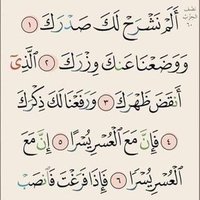 نصف الحزب ٦٠
أَلَمْ نَشْرَحْ لَكَ صَدْرَكَ ١
وَوَضَعْنَا عَنكَ وِزْرَكَ ٢ ٱلَّذِىٓ
أَنقَضَ ظَهْرَكَ ٣ وَرَفَعْنَا لَكَ ذِكْرَكَ
٤ فَإِنَّ مَعَ ٱلْعُسْرِ يُسْرًا ٥ إِنَّ مَعَ
ٱلْعُسْرِ يُسْرًا ٦ فَإِذَا فَرَغْتَ فَٱنصَبْ